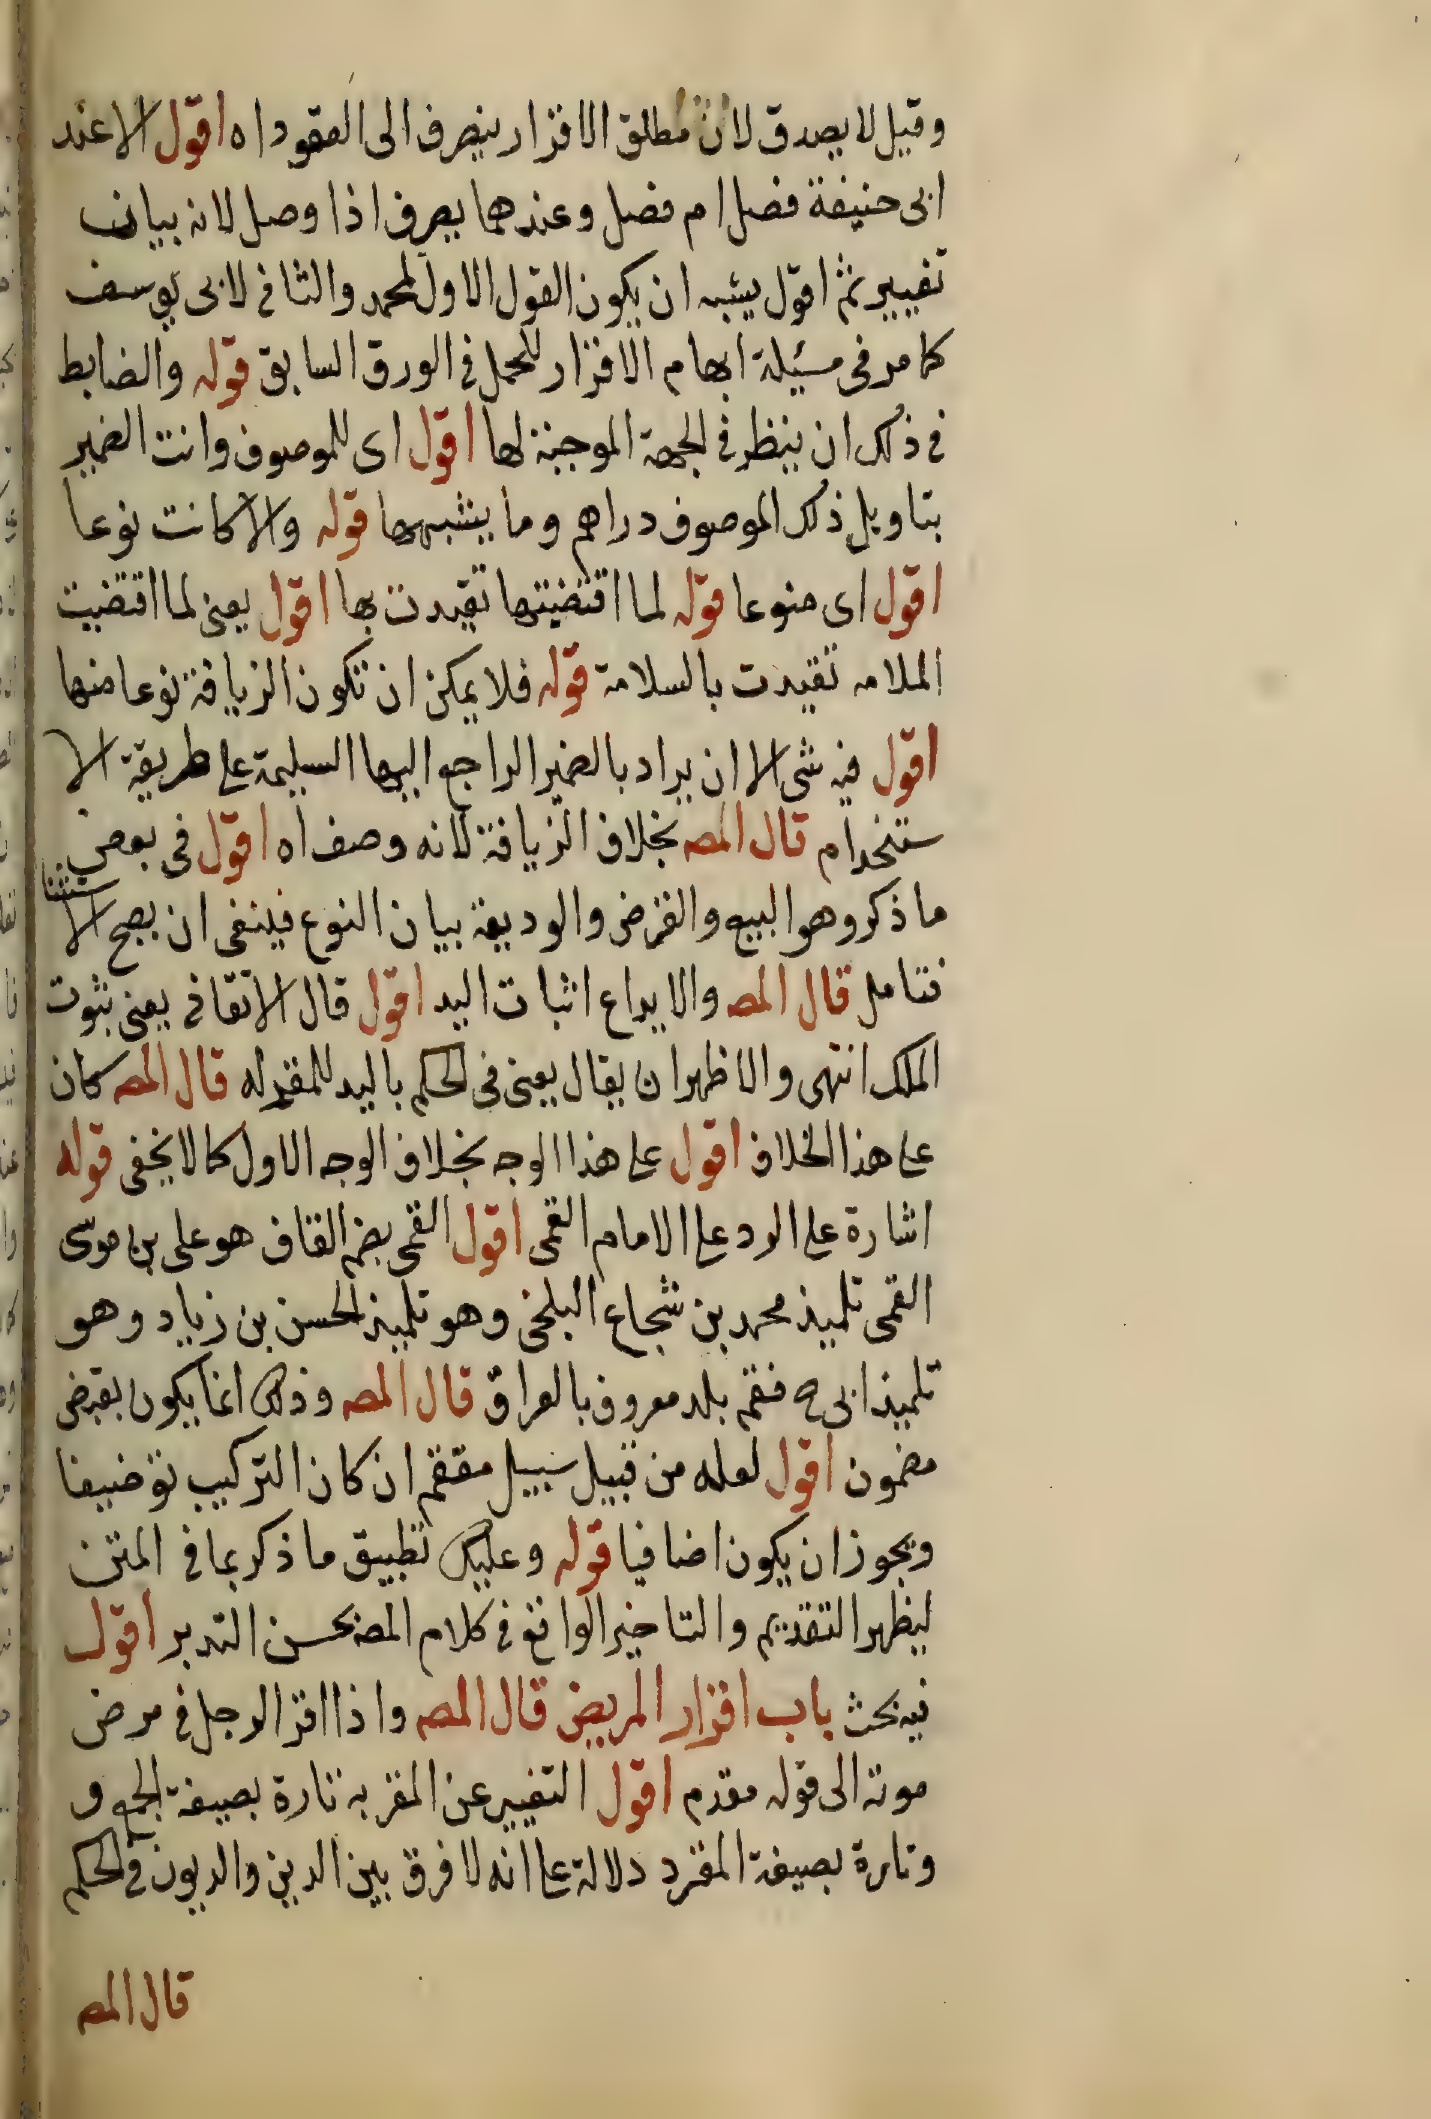 وقيل لا يصدق لان مطلق الاقرار ينصرف الى العقود اه اقول الا عند
ابى حنيفة فصل ام فصل وعندهما يصرف اذا وصل لانه بيان
تغيير ثم اقول يشبه ان يكون القول الاول لمحمد والثانى لابى يوسف
كما مر فى مسئلة ابهام الاقرار للحمل فى الورق السابق قوله والضابط
فى ذلك ان ينظر فى الجهة الموجبة لها اقول اى للموصوف وانث الضمير
بتاويل ذلك الموصوف دراهم وما يشبهها قوله والا كانت نوعا
اقول اى منوعا قوله لما اقتضيتها تقيدت بها اقول يعنى لما اقتضيت
الملامه تقيدت بالسلامة قوله فلا يمكن ان تكون الزيافة نوعا منها
اقول فيه شى الا ان يراد بالضمير الراجع اليها السليمة على طريقة الا
ستخدام قال المصـ بخلاف الزيافة لانه وصف اه اقول فى بعض
ما ذكر وهو البيع والقرض والوديعة بيان النوع فينغى ان يصح الاستثنا
فتامل قال المصـ والايداع اثبات اليد اقول قال الاتقانى يعنى بثبوت
الملك انتهى والاظهر ان يقال يعنى فى الحكم باليد للمقر له قال المصـ كان
على هذا الخلاف اقول على هذا الوجه بخلاف الوجه الاول كما لا يخفى قوله
اشارة على الرد على الامام القمى اقول القمى بضم القاف هو على بن موسى
القمى تلميذ محمد بن شجاع البلخى وهو تلميذ الحسن بن زياد وهو
تلميذ ابى ح فقم بلد معروف بالعراق قال المصـ وذلك انما يكون بقبض
مضمون اقول لعله من قبيل سبيل مفعم ان كان التركيب توصيفا
ويجوز ان يكون اضافيا قوله وعليك تطبيق ما ذكر بما فى المتن
ليظهر التقديم والتاخير الواقع فى كلام المصـ بحسن التدبر اقول
فيه بحث باب اقرار المريض قال المصـ واذا اقر الرجل فى مرض
موته الى قوله مقدم اقول التعبير عن المقر به تارة بصيغة الجمع و
وتارة بصيغة المفرد دلالة على انه لا فرق بين الدين والديون فى الحكم
قال المصـ